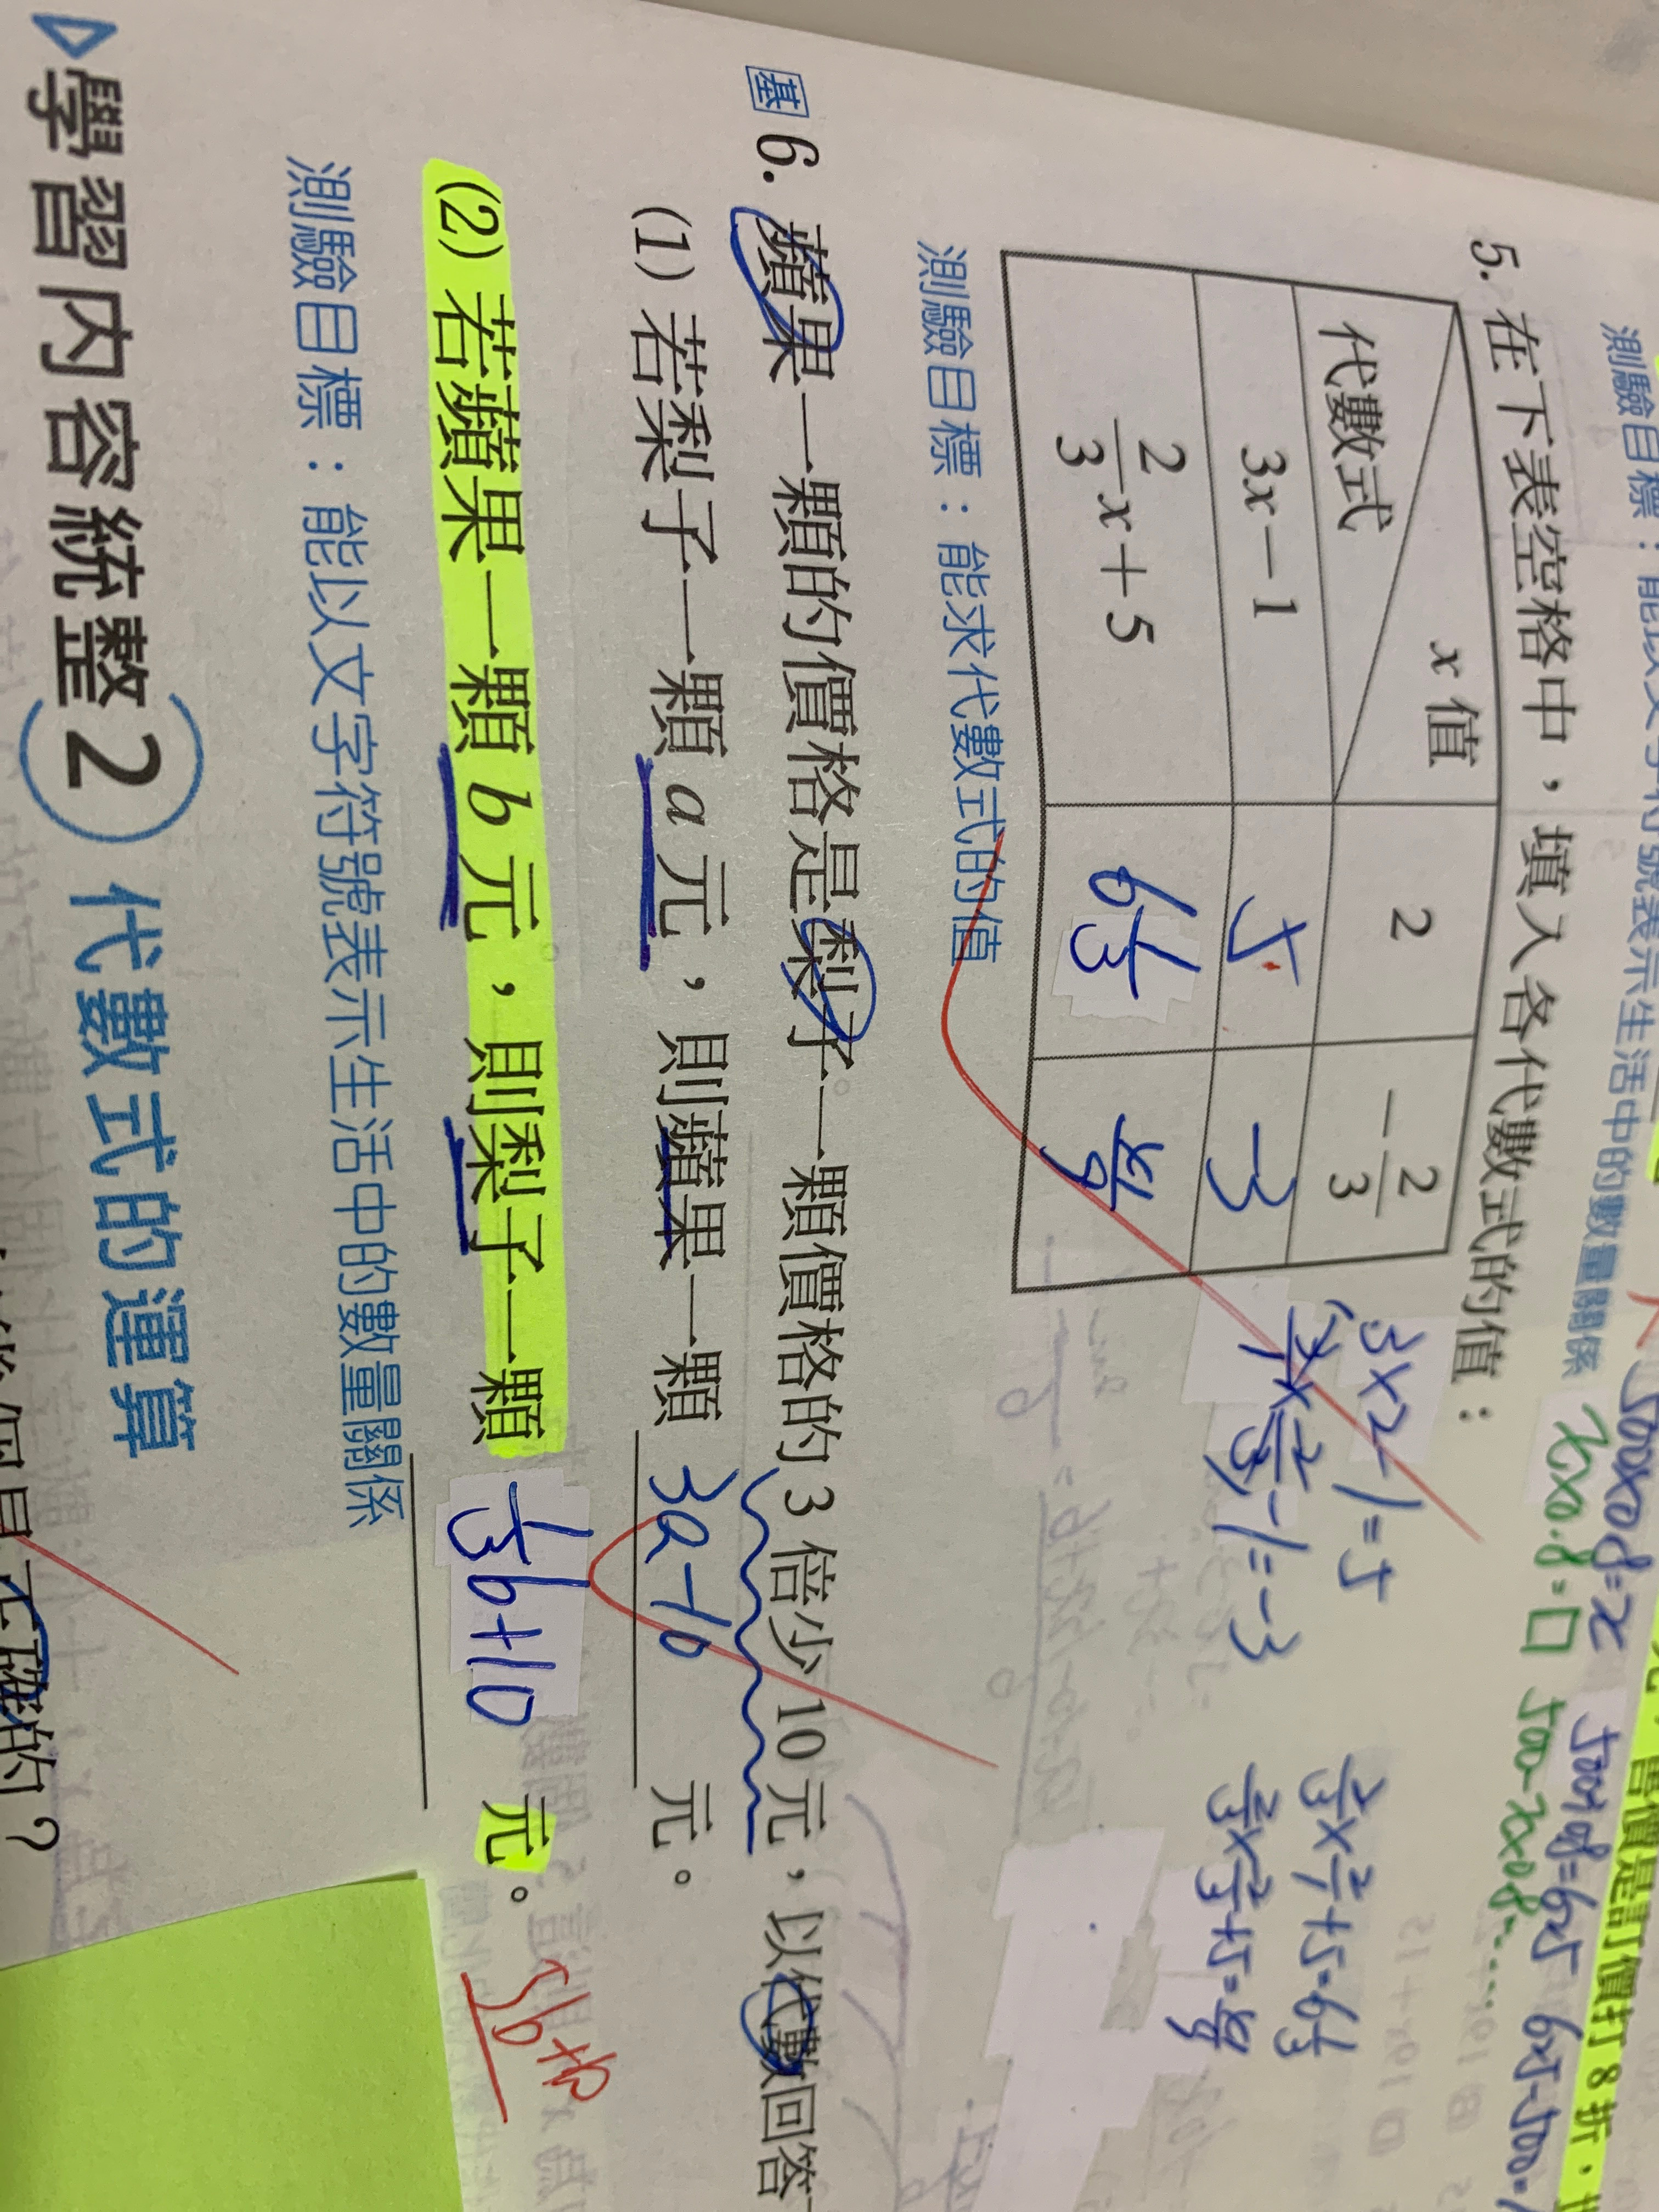 測驗目標：能以文字符號表示生活中的數量關係
500×0.8=x
x×0.8=□
售價是訂價打8折，
5.在下表空格中，填入各代數式的值：
x值
代數式
2
-2/3
3x-1
5
-3
2/3x+5
6 1/3
3×2-1=5
2/3×2/1+5=6 1/3
測驗目標：能求代數式的值
基6.蘋果一顆的價格是梨子一顆價格的3倍少10元，以代數回答
(1)若梨子一顆a元，則蘋果一顆 3a-10 元。
(2)若蘋果一顆b元，則梨子一顆 1/3b+10 元。
測驗目標：能以文字符號表示生活中的數量關係
學習內容統整2 代數式的運算
正確的？